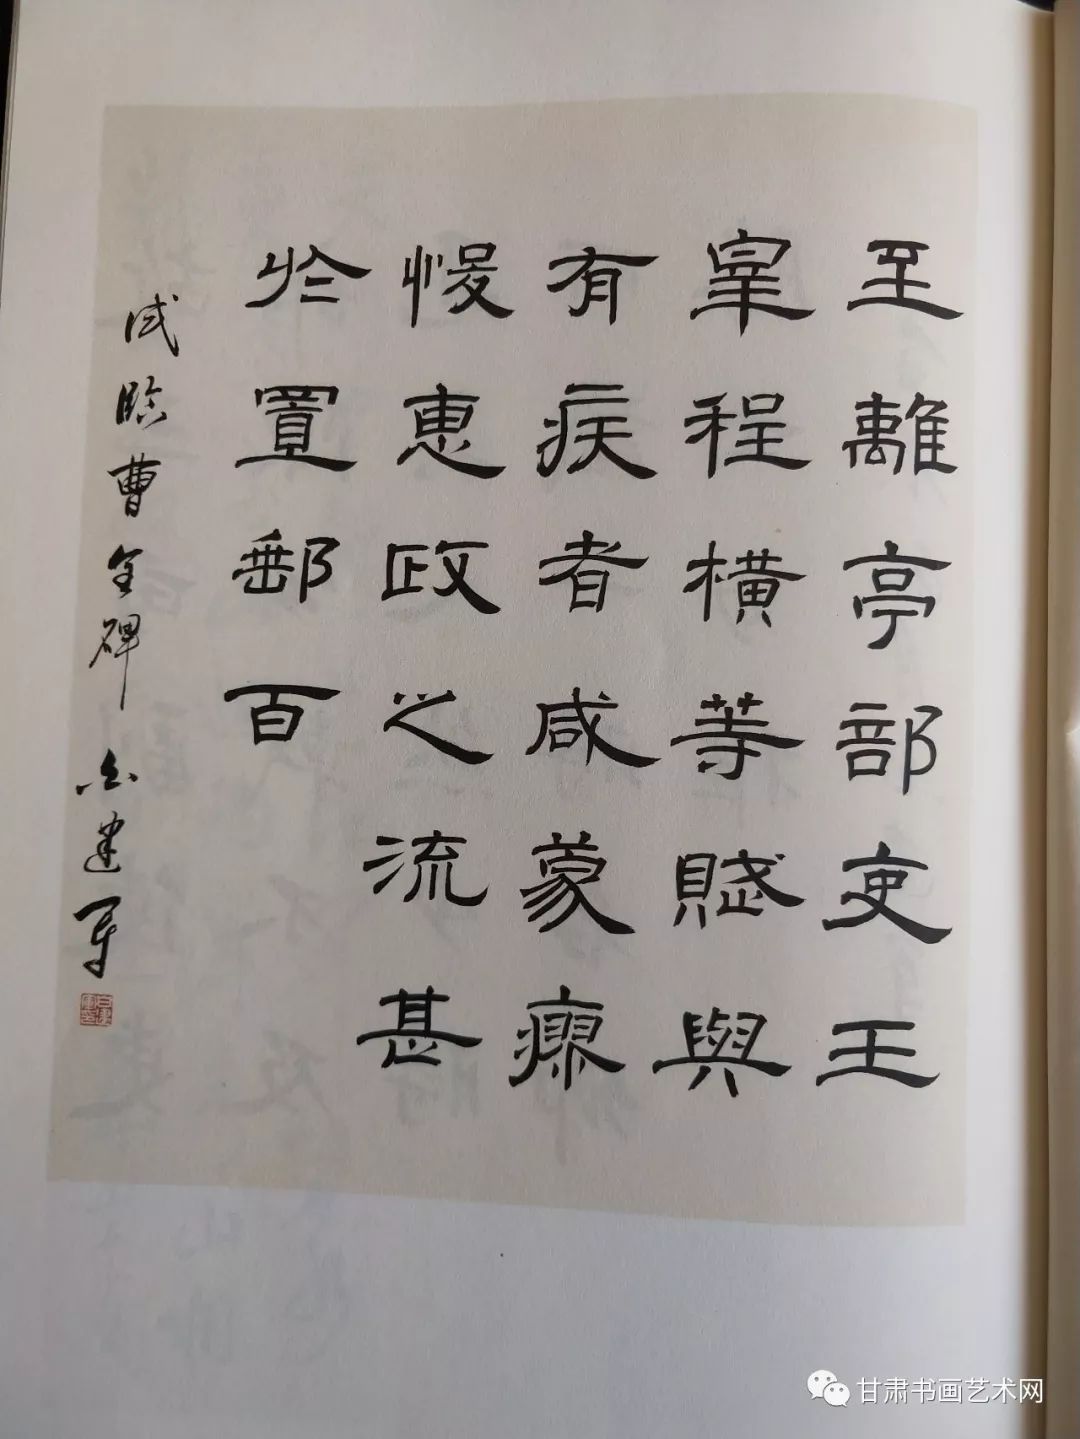 至離亭部吏王
宰程橫等賦與
有疾者咸蒙瘳
悛惠政之流甚
於置郵百
试临曹全碑 白建军
甘肃书画艺术网